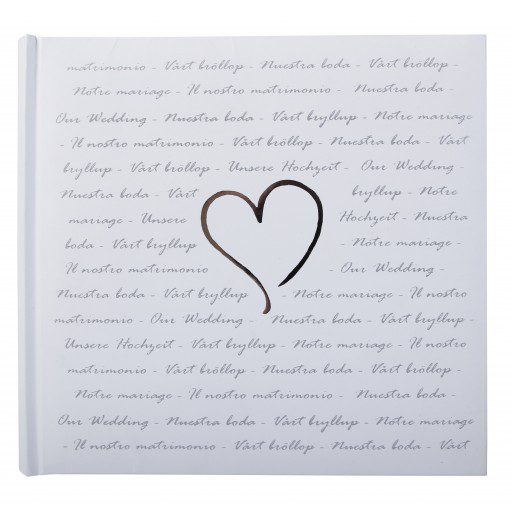 matrimonio - Vårt bröllop - Nuestra boda - Vårt bröllop -
Notre mariage - Il nostro matrimonio - Nuestra boda -
Our Wedding - Nuestra boda - Vårt bryllup - Notre mariage
- Il nostro matrimonio - Vårt bröllop - Nuestra boda - Vårt
bryllup - Vårt bröllop - Unsere Hochzeit - Our Wedding -
Nuestra boda - Vårt bryllup - Notre
mariage - Unsere Hochzeit - Nuestra
boda - Vårt bryllup - Notre mariage -
Il nostro matrimonio - Our Wedding -
Nuestra boda - Vårt bryllup - Notre mariage - Il nostro
matrimonio - Our Wedding - Nuestra boda - Vårt bryllup -
Unsere Hochzeit - Vårt bryllup - Notre mariage - Il nostro
matrimonio - Vårt bröllop - Nuestra boda - Vårt bröllop -
Notre mariage - Il nostro matrimonio - Nuestra boda -
Our Wedding - Nuestra boda - Vårt bryllup - Notre mariage
- Il nostro matrimonio - Vårt bröllop - Nuestra boda - Vårt